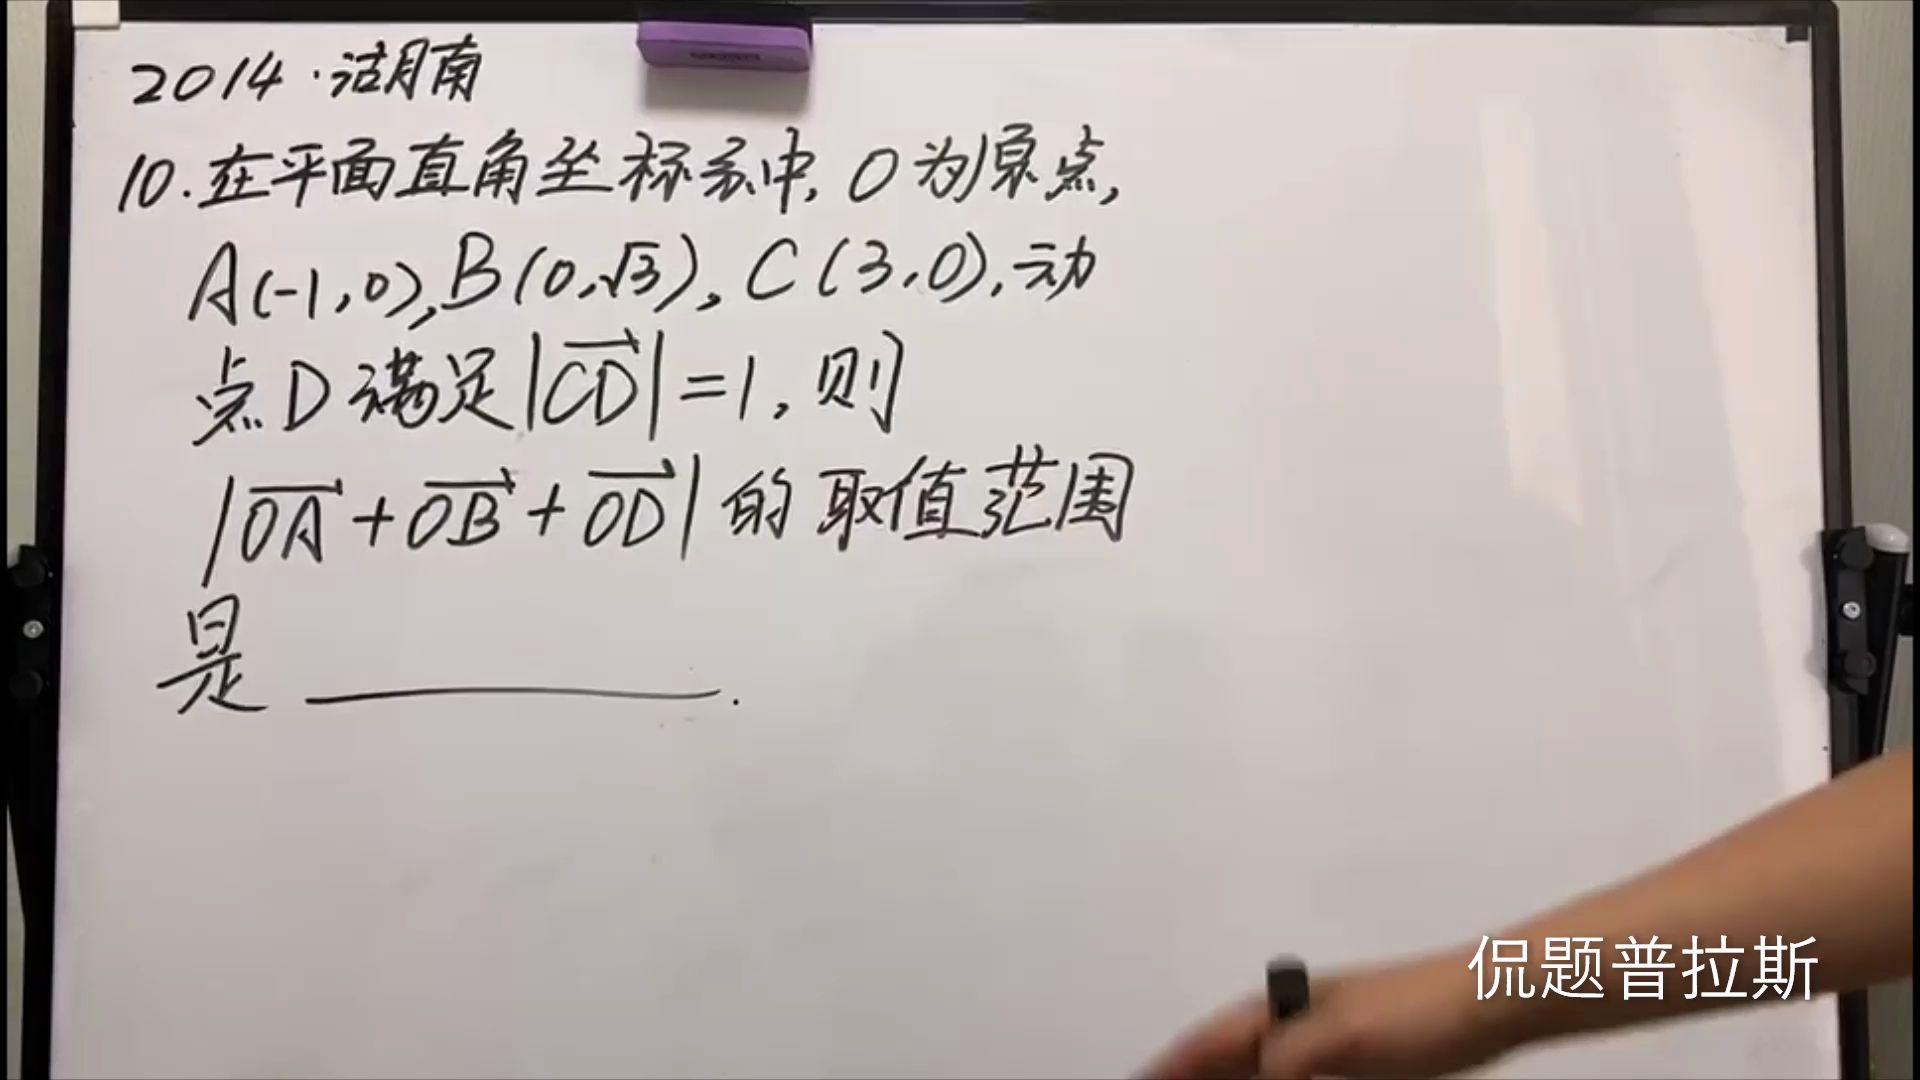 2014·湖南
10.在平面直角坐标系中, O为原点,
A(-1,0), B(0,√3), C(3,0), 动
点D满足|\overrightarrow{CD}|=1, 则
|\overrightarrow{OA}+\overrightarrow{OB}+\overrightarrow{OD}|的取值范围
是________.
侃题普拉斯